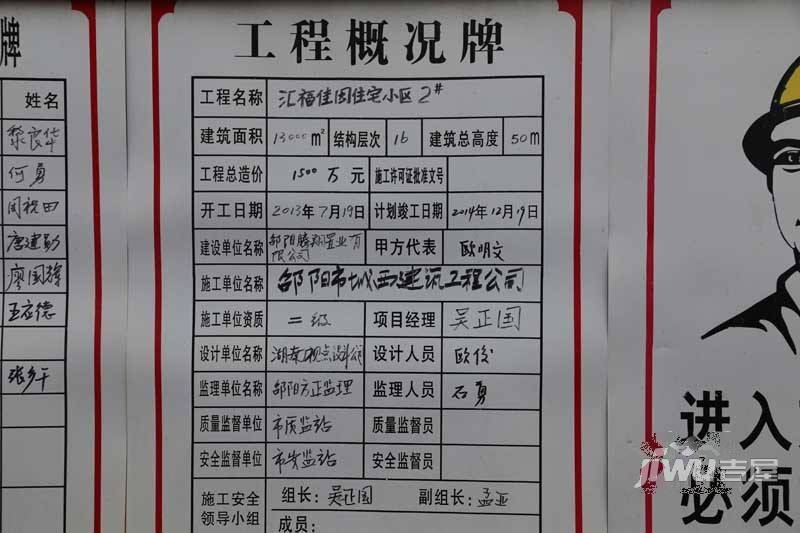 牌
姓名
黎良华
何勇
闵祝田
唐建勋
廖国强
王应德
工程概况牌
工程名称 汇福佳园住宅小区2#
建筑面积 13000m² 结构层次 16 建筑总高度 50m
工程总造价 1500万元 施工许可证批准文号
开工日期 2013年7月19日 计划竣工日期 2014年12月19日
建设单位名称 邵阳腾翔置业有限公司 甲方代表 欧明文
施工单位名称 邵阳市城西建筑工程公司
施工单位资质 二级 项目经理 吴正国
设计单位名称 湖南视点设计公司 设计人员 欧俊
监理单位名称 邵阳方正监理 监理人员 石勇
质量监督单位 市质监站 质量监督员
安全监督单位 市安监站 安全监督员
施工安全领导小组 组长:吴正国 副组长:孟亚
成员:
进入
必须
JIWU吉屋